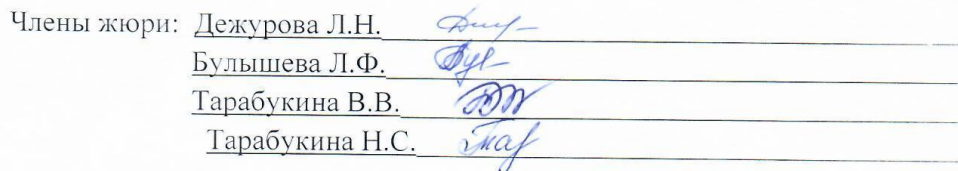 Члены жюри: Дежурова Л.Н.
Булышева Л.Ф.
Тарабукина В.В.
Тарабукина Н.С.